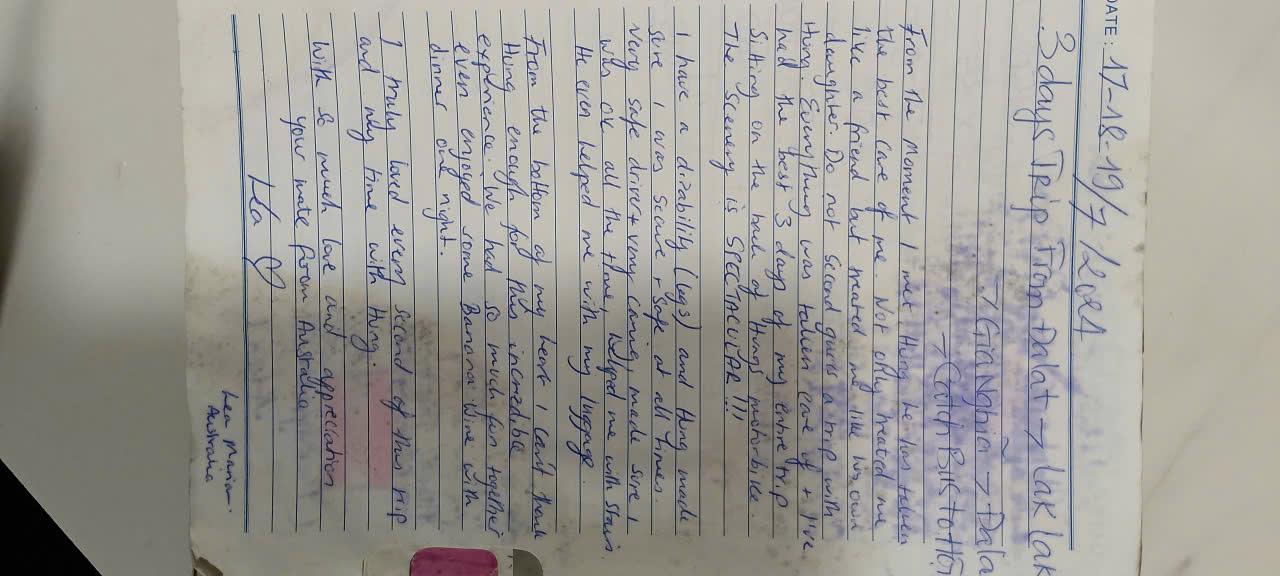 DATE: 17-18-19/7/2024
3 days Trip From Dalat → Lak lak
→ Gia Nghĩa → Dala
→ Catch Bus to Hồ
From the moment I met Hung he has taken
the best care of me. Not only treated me
like a friend but treated me like his own
daughter. Do not second guess a trip with
Hung. Everything was taken care of + I've
had the best 3 days of my entire trip
Sitting on the back of Hungs motorbike.
The scenery is SPECTACULAR!!!
I have a disability (legs) and Hung made
sure I was secure + safe at all times.
very safe driver + very caring, made sure I
was ok all the time, helped me with stairs.
He even helped me with my luggage.
From the bottom of my heart I can't thank
Hung enough for this incredible
experience. We had so much fun together
even enjoyed some Banana Wine with
dinner one night.
I truly loved every second of this trip
and my time with Hung.
With so much love and appreciation
your mate from Australia
Lea ♡
Australia